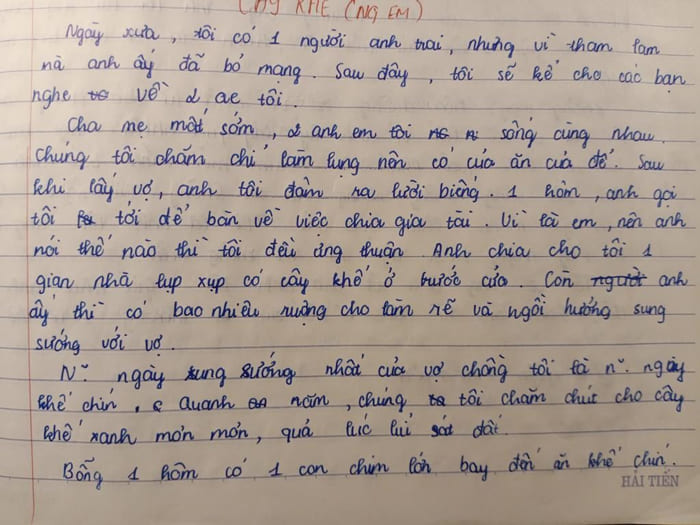 CÂY KHẾ (NG EM)
Ngày xưa, tôi có 1 người anh trai, nhưng vì tham lam
mà anh ấy đã bỏ mạng. Sau đây, tôi sẽ kể cho các bạn
nghe về 2 ae tôi.
Cha mẹ mất sớm, 2 anh em tôi sống cùng nhau.
Chúng tôi chăm chỉ làm lụng nên có của ăn của để. Sau
khi lấy vợ, anh tôi đâm ra lười biếng. 1 hôm, anh gọi
tôi tới để bàn về việc chia gia tài. Vì là em, nên anh
nói thế nào thì tôi đều ưng thuận. Anh chia cho tôi 1
gian nhà lụp xụp có cây khế ở trước cửa. Còn anh
ấy thì có bao nhiêu ruộng cho làm rẽ và ngồi hưởng sung
sướng với vợ.
N~ ngày sung sướng nhất của vợ chồng tôi là n~. ngày
khế chín. Quanh năm, chúng tôi chăm chút cho cây
khế xanh mơn mởn, quả lúc lỉu sát đất.
Bỗng 1 hôm có 1 con chim lớn bay đến ăn khế chín.
HẢI TIẾN